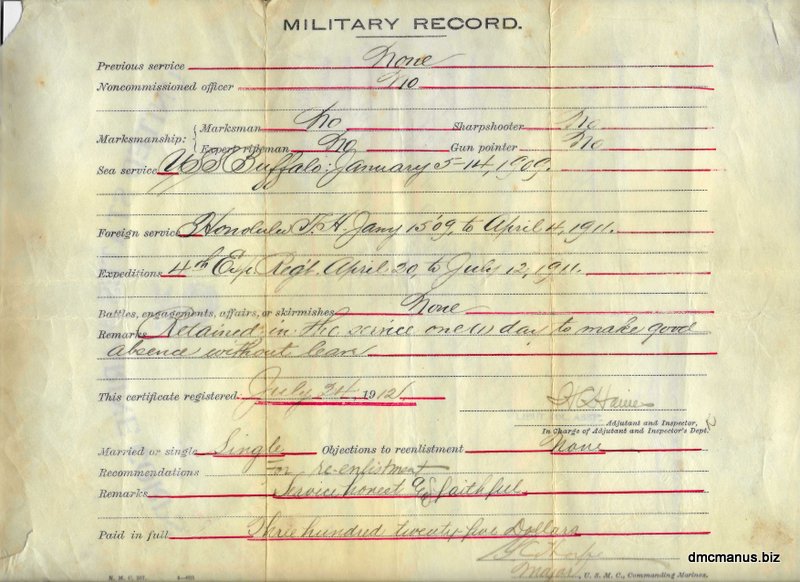 MILITARY RECORD.
Previous service None
Noncommissioned officer No
Marksmanship: { Marksman No Sharpshooter No
Expert rifleman No Gun pointer No
Sea service USS Buffalo: January 5-14, 1909.
Foreign service Honolulu T.H. Jany 15'09, to April 4, 1911.
Expeditions 4th Exp. Regt. April 20, to July 12, 1911.
Battles, engagements, affairs, or skirmishes None
Remarks Retained in the service one (1) day to make good
absence without leave
This certificate registered July 24, 1912
Adjutant and Inspector,
In Charge of Adjutant and Inspector's Dept.
Married or single Single Objections to reenlistment None
Recommendations for re-enlistment
Remarks Service honest & faithful.
Paid in full Three hundred twenty five Dollars
Major, U. S. M. C., Commanding Marines.
N. M. C.
dmcmanus.biz